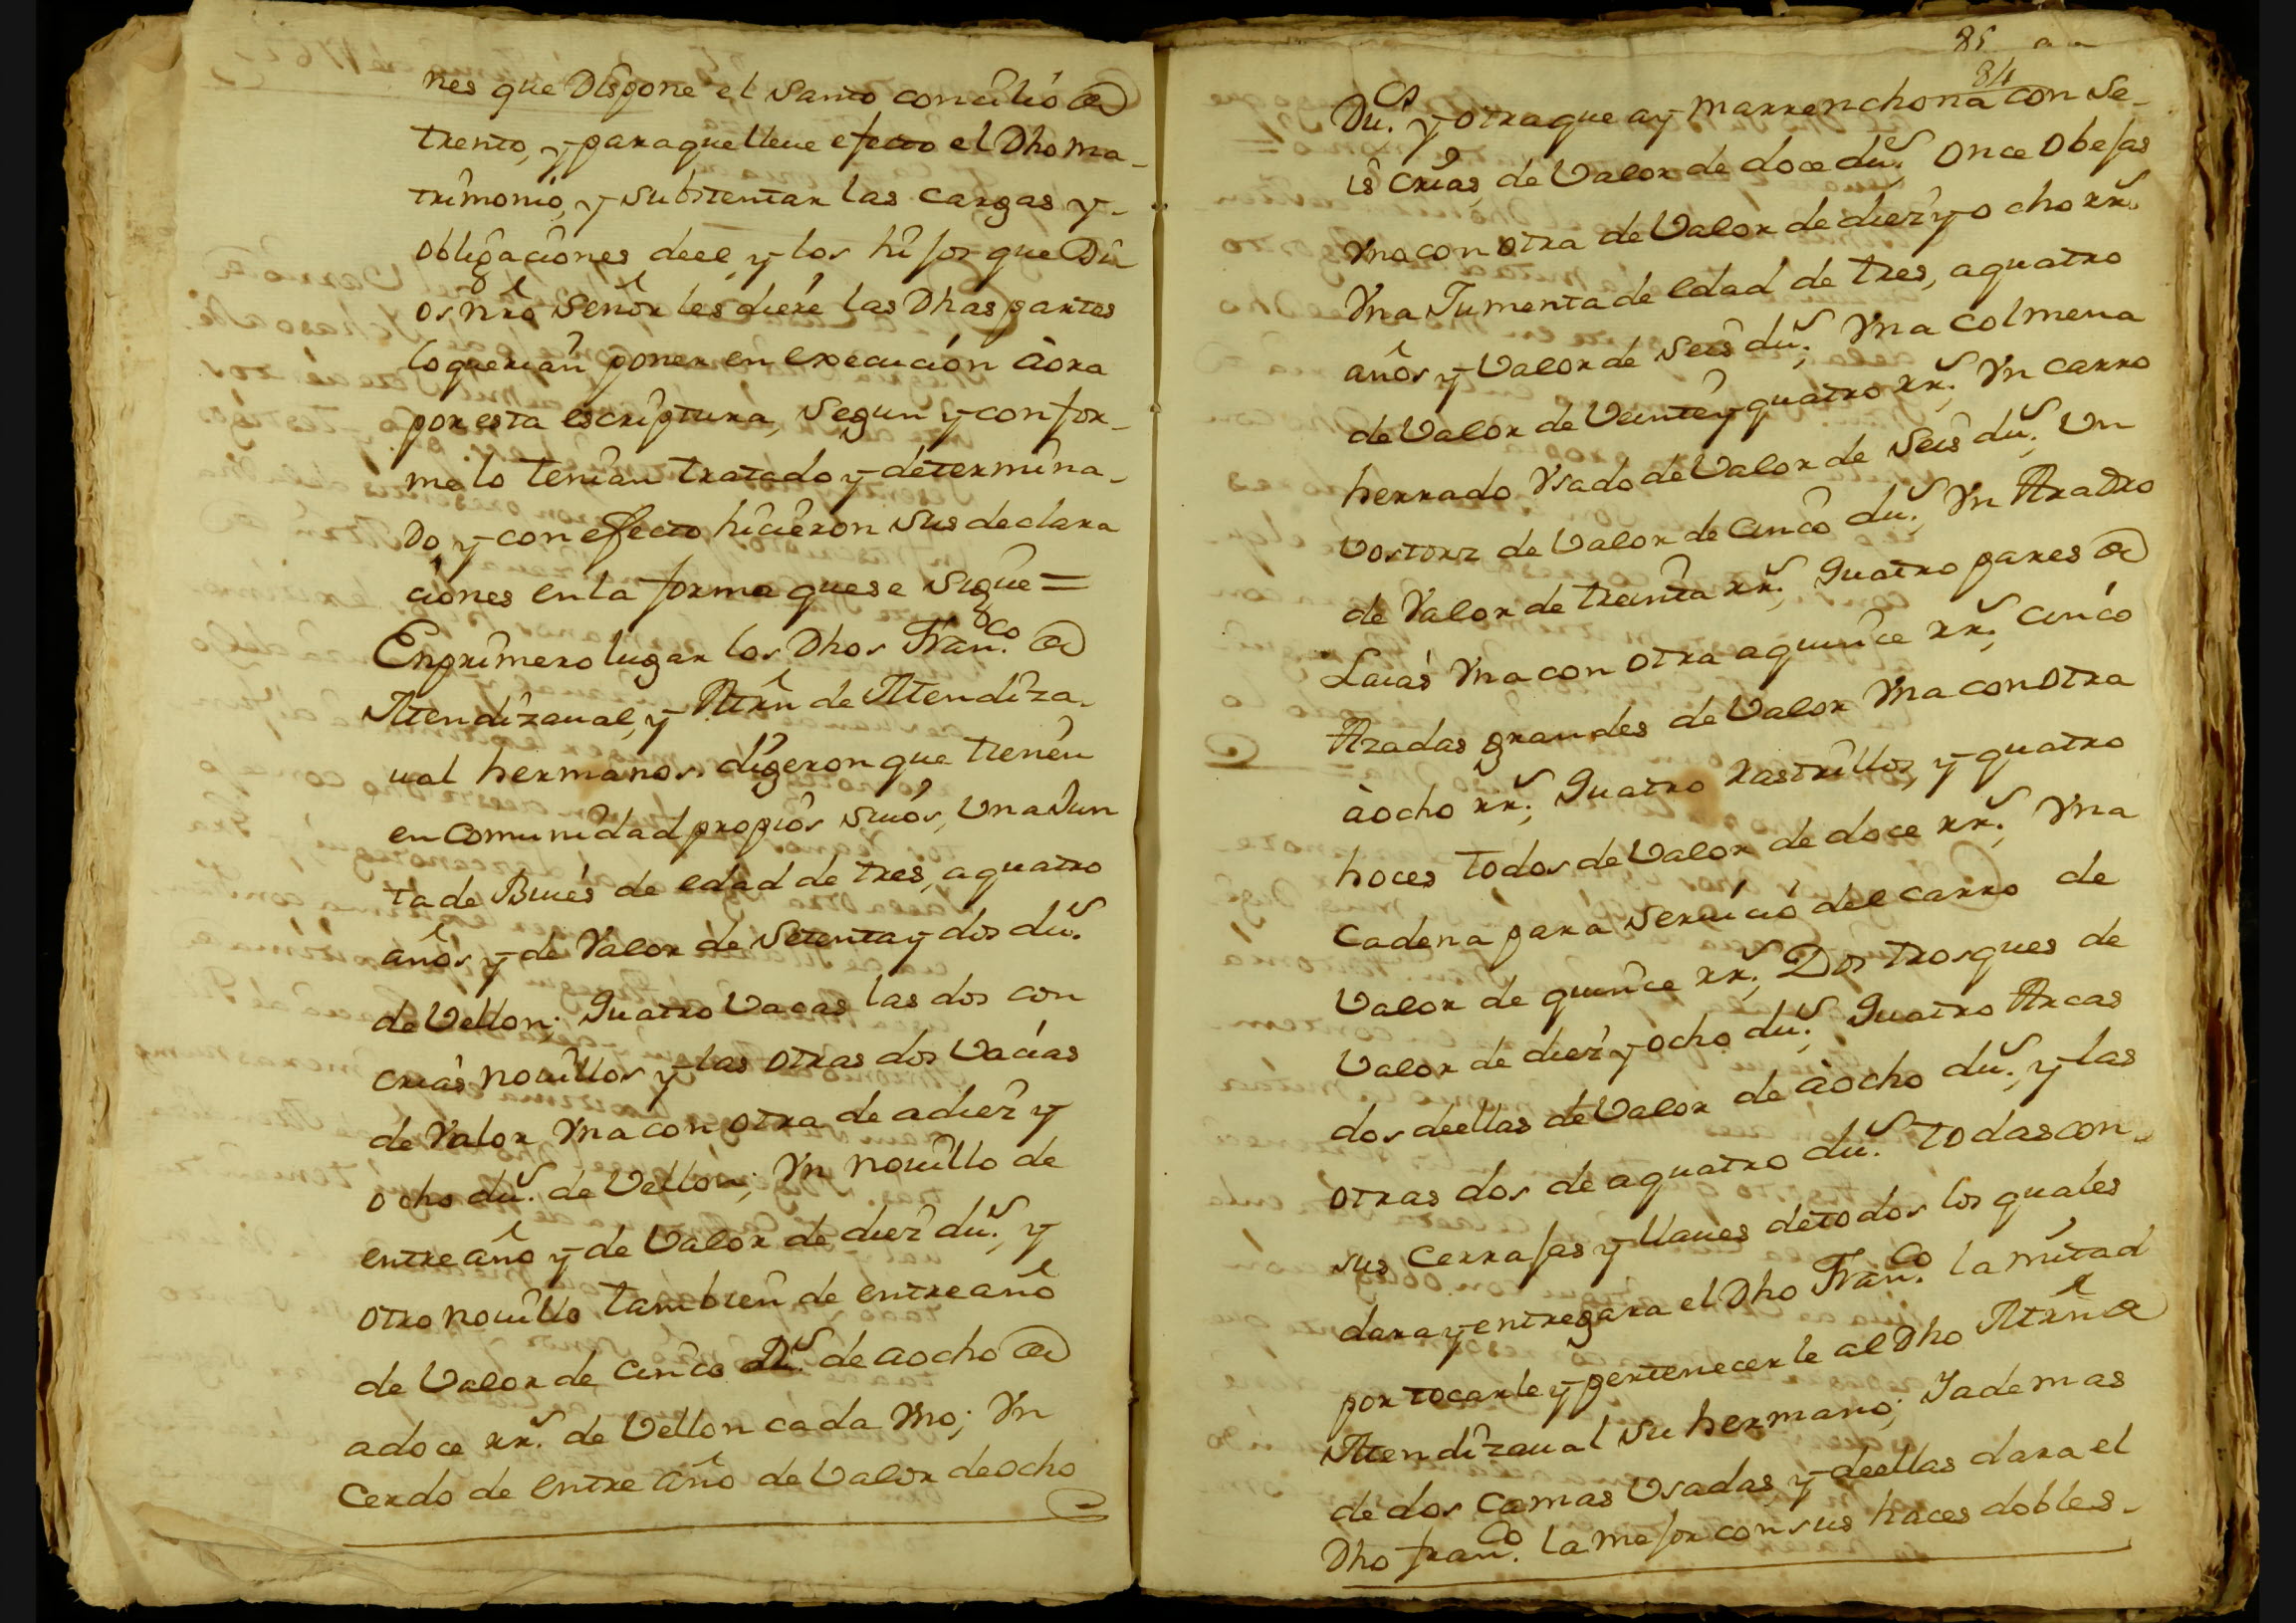 nes que Dispone el Santo concilio de
trento, y paraque lleue efecto el Dho ma-
trimonio, y substentar las cargas y-
obligaciones deel, y los hijos que Di
os nrõ Señor les diere las Dhas partes
loquerian poner en execucion àora
por esta escriptura, Segun y confor-
me lo tenian tratado y determina-
do, y con efecto hicieron sus declara
ciones en la forma que se sigue=
En primero lugar los Dhos Fran.co de
Atendizaual, y Atrñ de Atendiza-
ual hermanos digeron que tienen
en comunidad propios suios, Una Jun
ta de Bues de edad de tres, a quatro
años y de Valor de Setenta y dos du.s
de Vellon; Quatro Vacas las dos con
crias nouillos y las otras dos Vacias
de Valor Vna con otra de a diez y
ocho du.s de Vellon; Vn nouillo de
entreaño y de Valor de diez du.s, y
otro nouillo tambien de entreaño
de Valor de cinco du.s de aocho a
adoce rr.s de Vellon cada Vno; Vn
Cerdo de entre año de Valor de ocho
85
84
Du.cs y otra que ay marrenchona con Se-
is crias, de Valor de doce du.s, once obejas
Vna con otra de Valor de diez y ocho rr.s
Vna Jumenta de edad de tres, aquatro
años y Valor de Seis du.s; Vna Colmena
de Valor de Veinte y quatro rr.s; Vn carro
herrado Vsado de Valor de Seis du.s; Un
Vostorz de Valor de Cinco du.s; Vn Aradro
de Valor de treinta rr.s; Quatro pares de
Laias Vna con otra aquince rr.s; cinco
Azadas grandes de Valor Vna con otra
àocho rr.s; Quatro rastrillos, y quatro
hoces todos de Valor de doce rr.s; Vna
Cadena para Seruicio del carro de
Valor de quince rr.s; Dos trosques de
Valor de diez y ocho du.s; Quatro Arcas
dos deellas de Valor de àocho du.s, y las
otras dos de aquatro du.s todas con
sus Cerrajas y llaues de todos los quales
dara y entregara el Dho Fran.co la mitad
por tocarle y pertenecerle al Dho Atrñ de
Atendizaual su hermano; Iademas
de dos camas Vsadas, y deellas dara el
Dho fran.co la mejor con sus haces dobles-